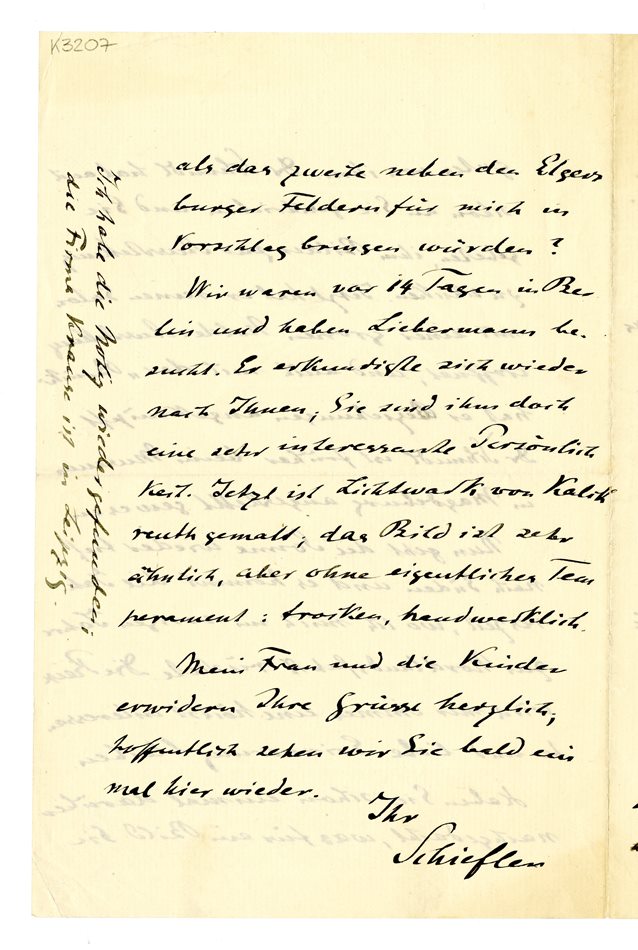 K3207
als das zweite neben den Elgers
burger Feldern für mich in
Vorschlag bringen würden?
Wir waren vor 14 Tagen in Ber-
lin und haben Liebermann be-
sucht. Er erkundigte sich wieder
nach Ihnen; Sie sind ihm doch
eine sehr interessante Persönlich
keit. Jetzt ist Lichtwark von Kalck
reuth gemalt; das Bild ist sehr
ähnlich, aber ohne eigentliches Tem
perament: trocken, handwerklich.
Meine Frau und die Kinder
erwidern Ihre Grüsse herzlich;
hoffentlich sehen wir Sie bald ein
mal hier wieder.
Ihr
Schiefler
Ich habe die Notiz wiedergefunden;
die Firma Krause ist in Leipzig.